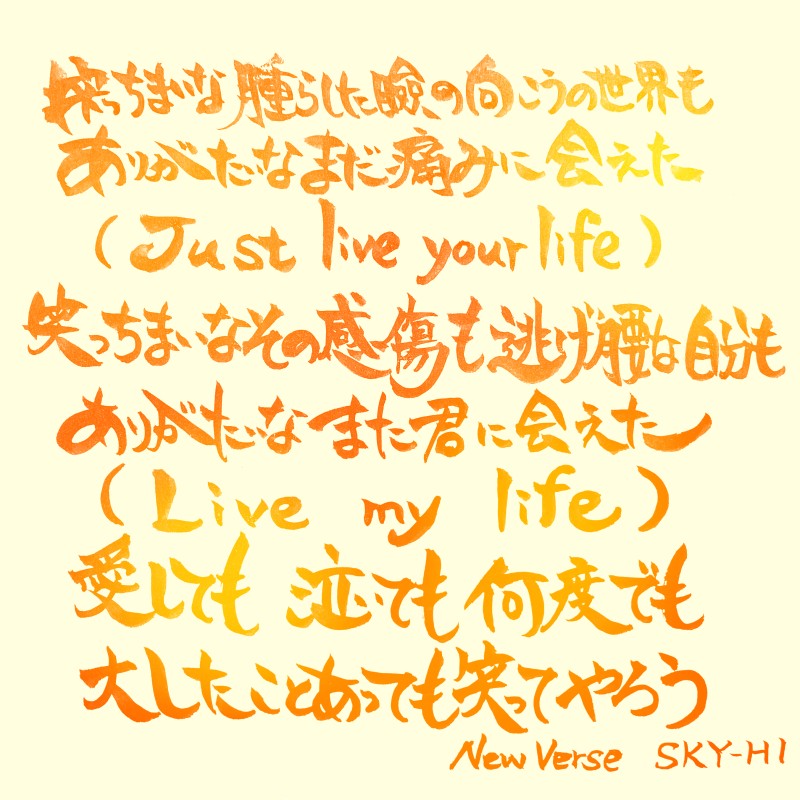 笑っちまいな腫らした瞼の向こうの世界も
ありがたいなまだ痛みに会えた
(Just live your life)
笑っちまいなその感傷も逃げ腰な自分も
ありがたいなまた君に会えた
(Live my life)
愛しても 泣いても 何度でも
大したことあっても笑ってやろう
New Verse SKY-HI